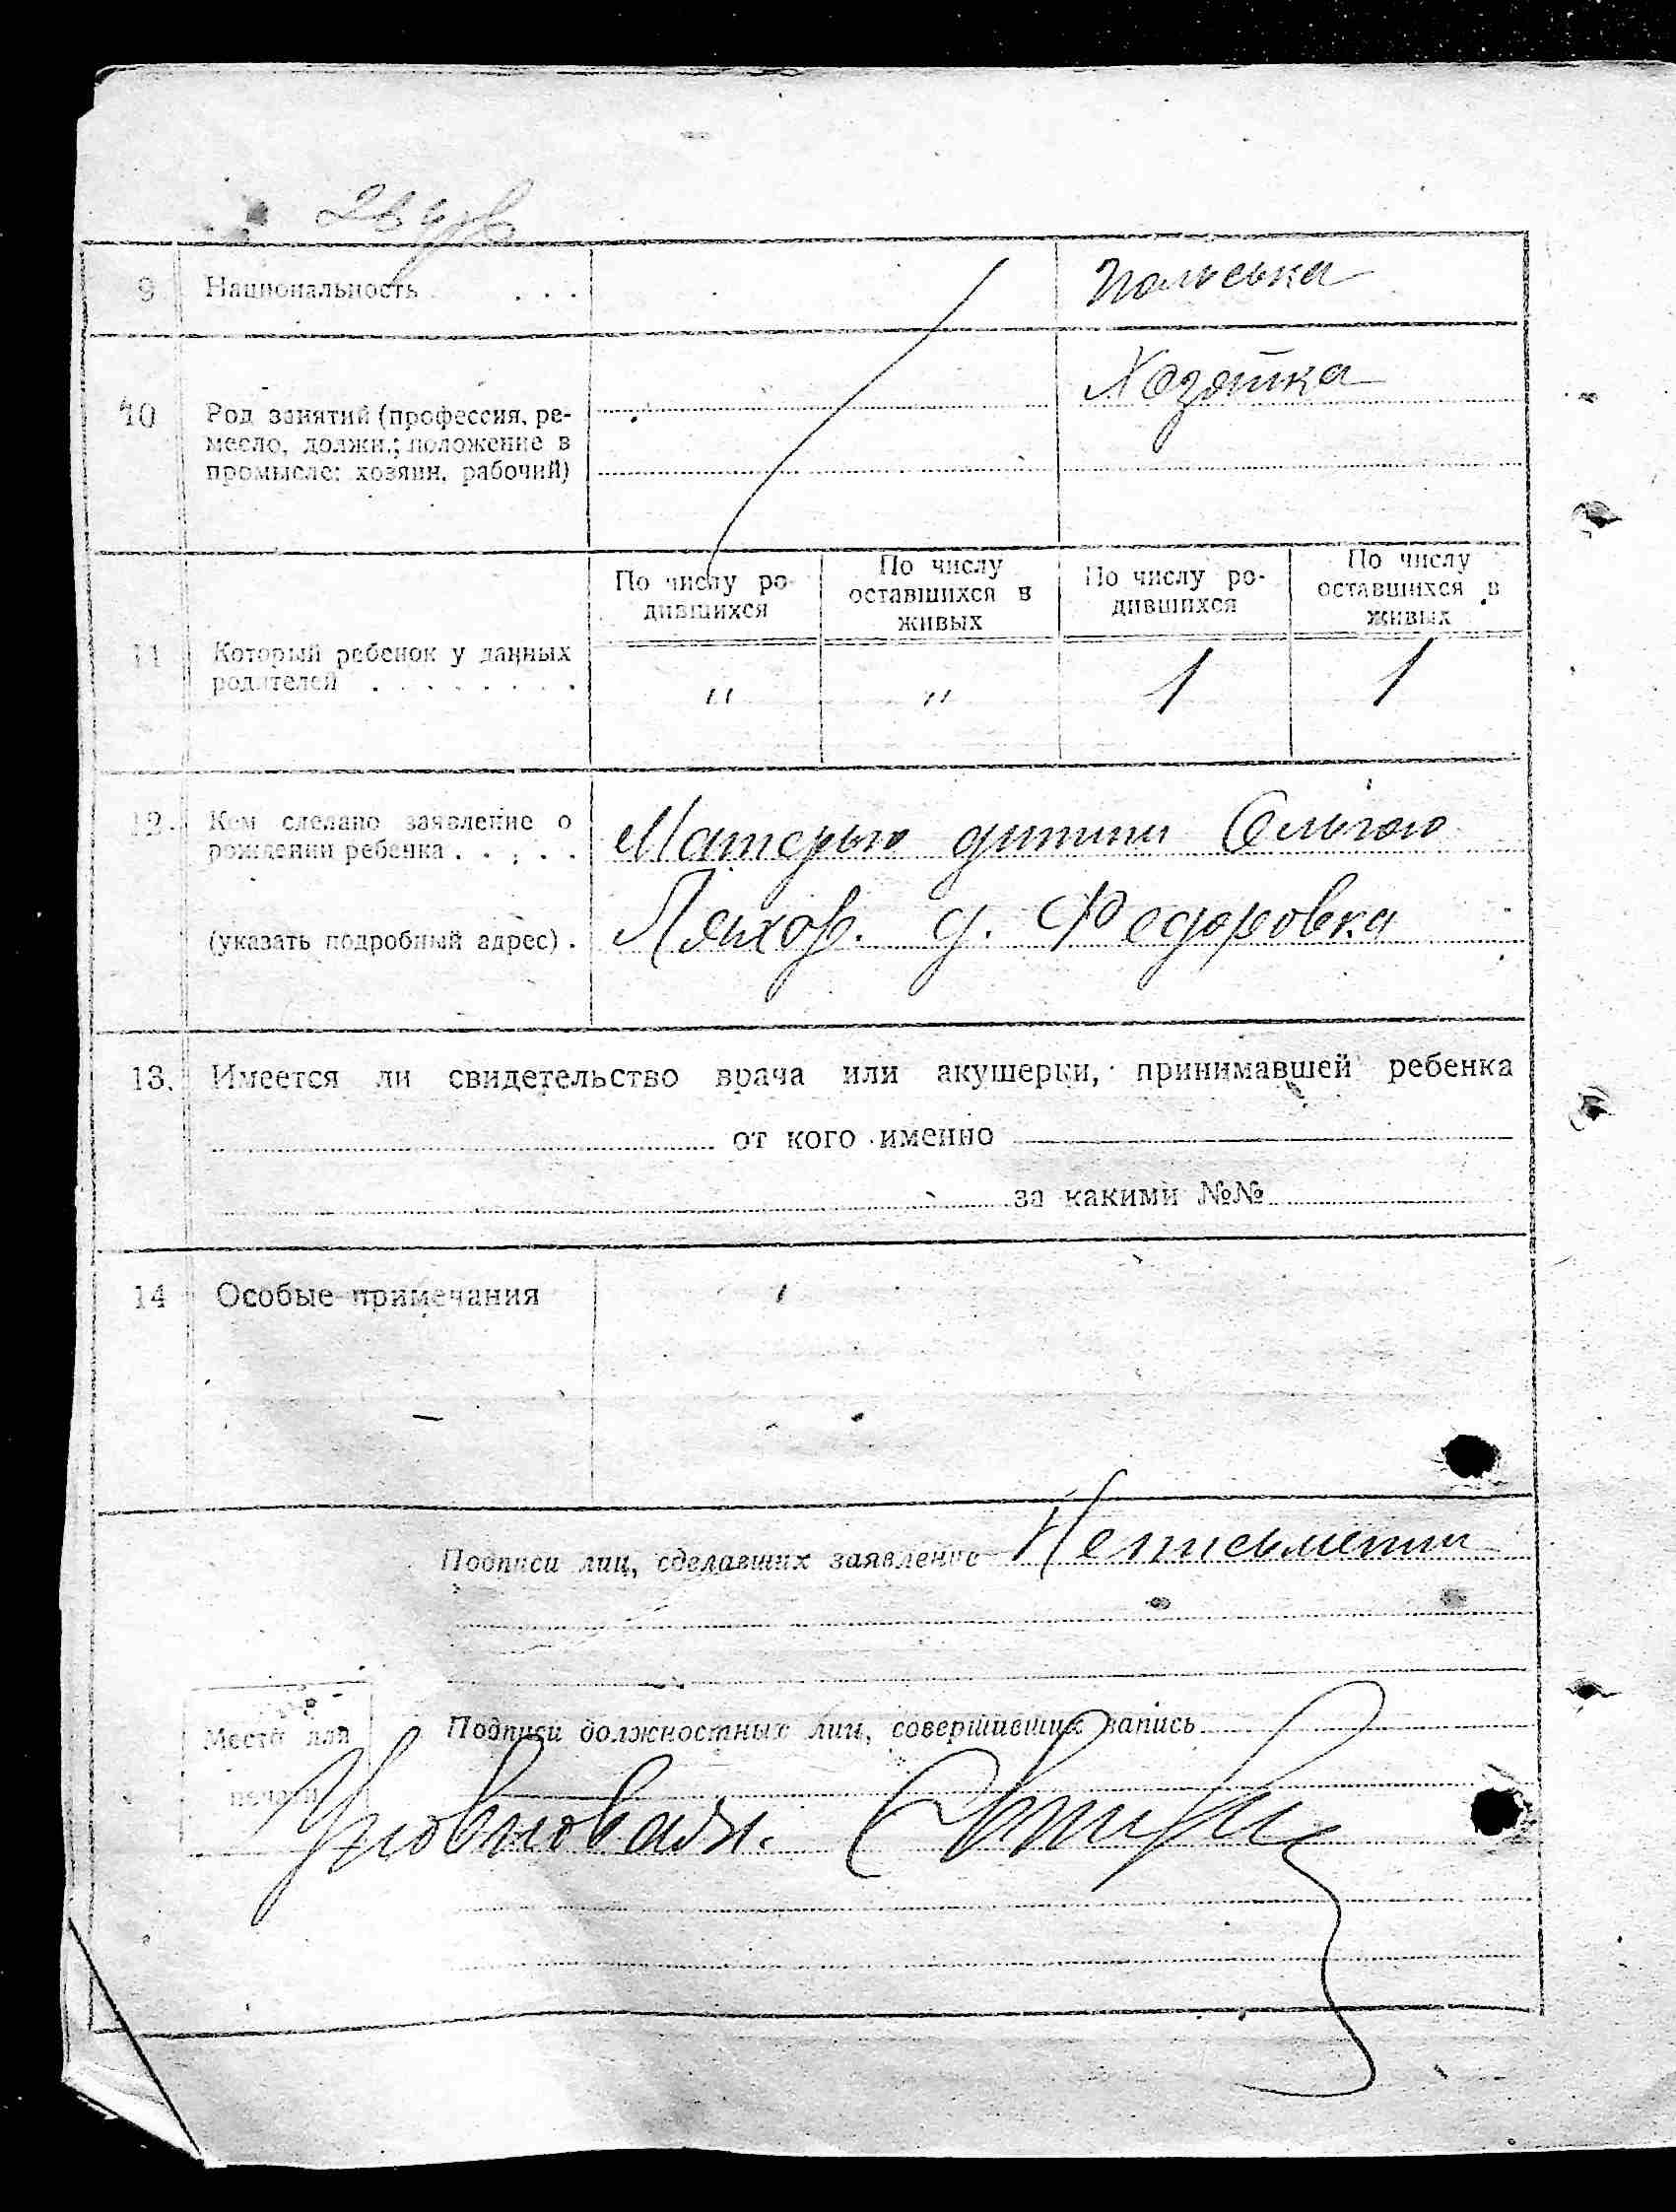 9 Национальность . . .
Польська
10 Род занятий (профессия, ре-
месло, должн.; положение в
промысле: хозяин, рабочий)
Хозяйка
По числу ро-
дившихся
По числу
оставшихся в
живых
По числу ро-
дившихся
По числу
оставшихся в
живых
11 Который ребенок у данных
родителей . . . . . . . .
" " 1 1
12. Кем сделано заявление о
рождении ребенка . . . . .
(указать подробный адрес) .
Матерью дитини Ольгою
д. Федоровка
13. Имеется ли свидетельство врача или акушерки, принимавшей ребенка
от кого именно
за какими №№
14 Особые примечания
Подписи лиц, сделавших заявление Неписьменни
Место для
печати
Подписи должностных лиц, совершивших запись